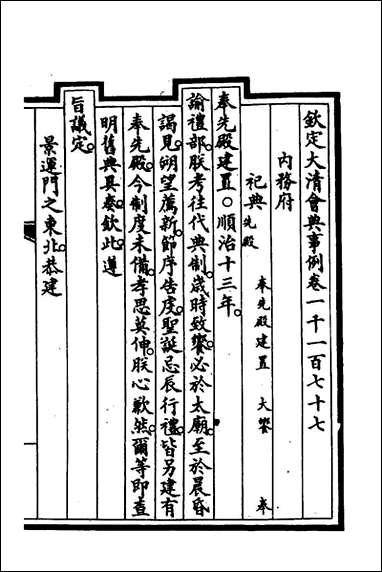 欽定大清會典事例卷一千一百七十七
內務府
祀典 奉先殿建置 大饗 奉
先殿
奉先殿建置○順治十三年
諭禮部朕考往代典制歲時致饗必於太廟至於晨昏
謁見朔望薦新節序告虔聖誕忌辰行禮皆另建有
奉先殿今制度未備孝思莫伸朕心歉然爾等即查
明舊典具奏欽此遵
旨議定
景運門之東北恭建